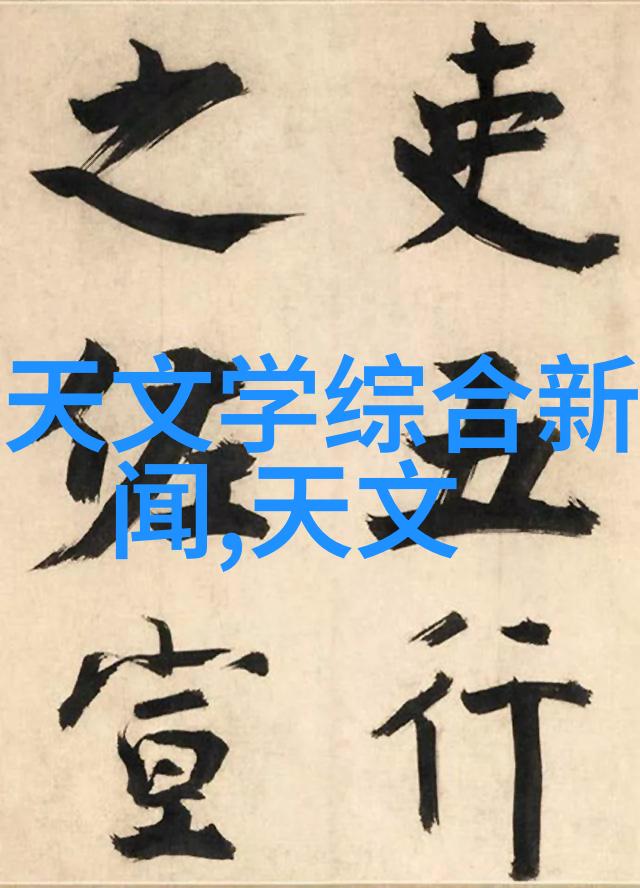 吏五行
之佐宣
天文学综合新
闻,天文